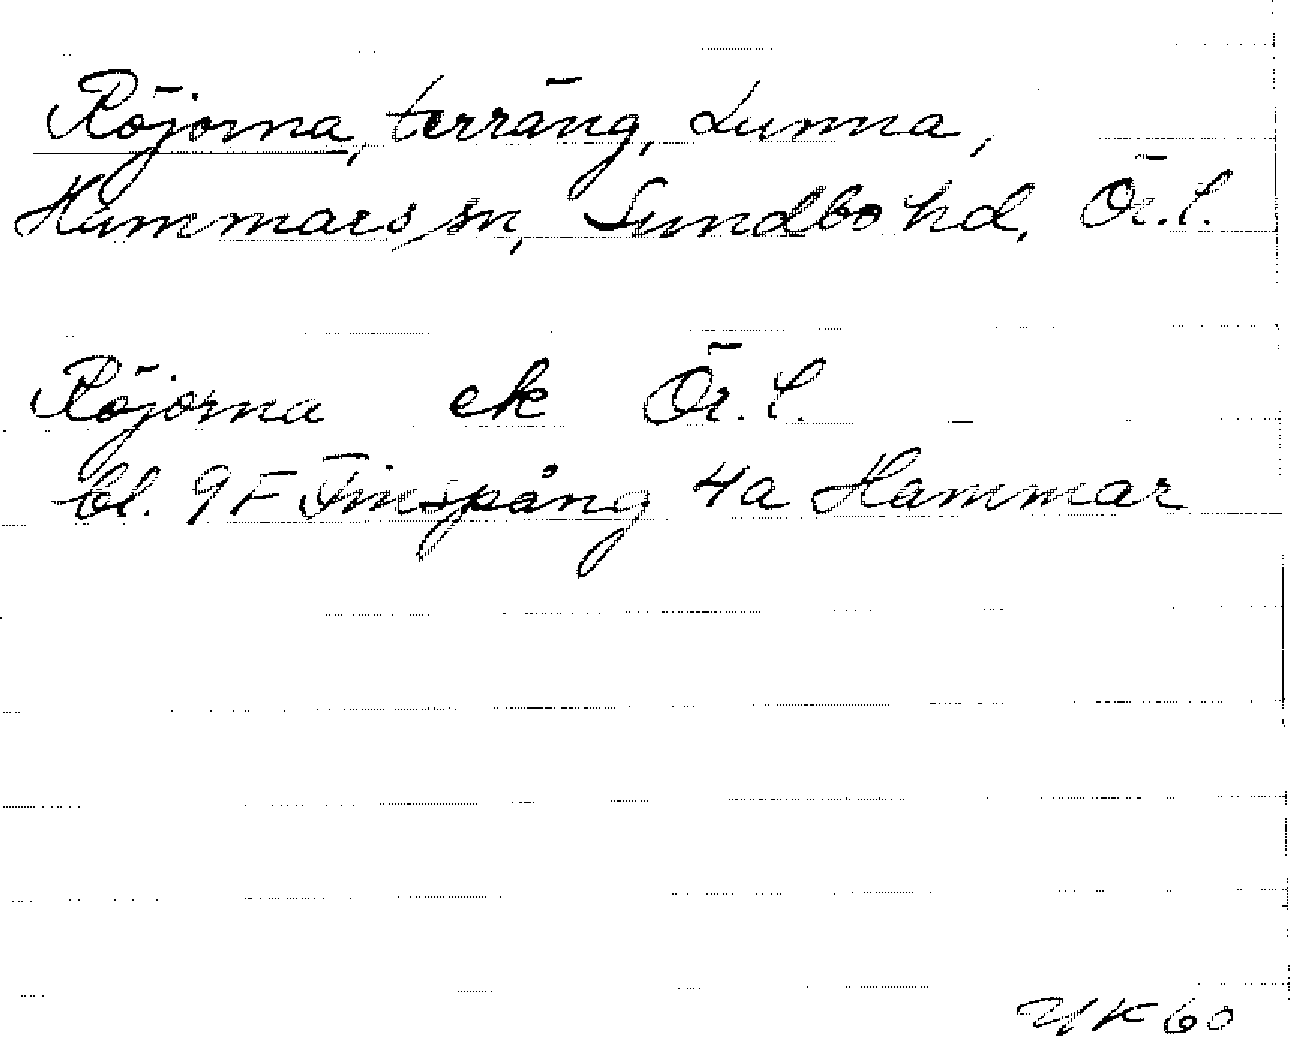 Röjorna, terräng, Lunna,
Hammars sn, Sundbo hd, Ör.l.
Röjorna ek Ör.l.
bl. 9F Finspång 4a Hammar
YK60